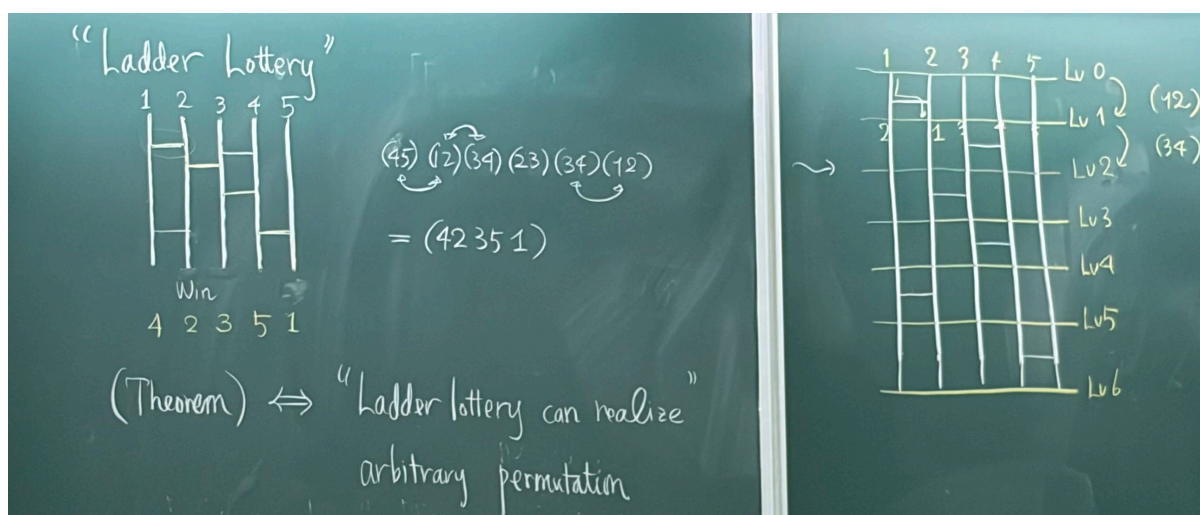 "Ladder Lottery"
1 2 3 4 5
Win
4 2 3 5 1
(45) (12) (34) (23) (34) (12)
= (42351)
(Theorem) ⇔ "Ladder lottery can realize"
arbitrary permutation
1 2 3 4 5 Lv 0
(12)
2 1 3 4 Lv 1
(34)
Lv 2
Lv 3
Lv4
Lv5
Lv 6